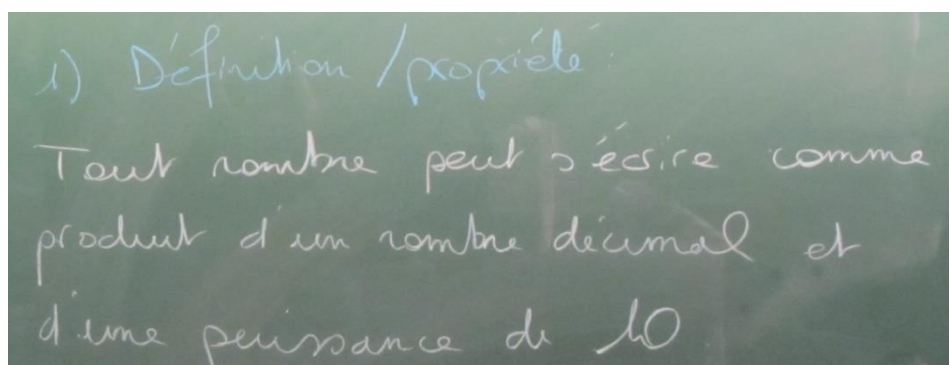 1) Définition / propriété :
Tout nombre peut s'écrire comme
produit d'un nombre décimal et
d'une puissance de 10